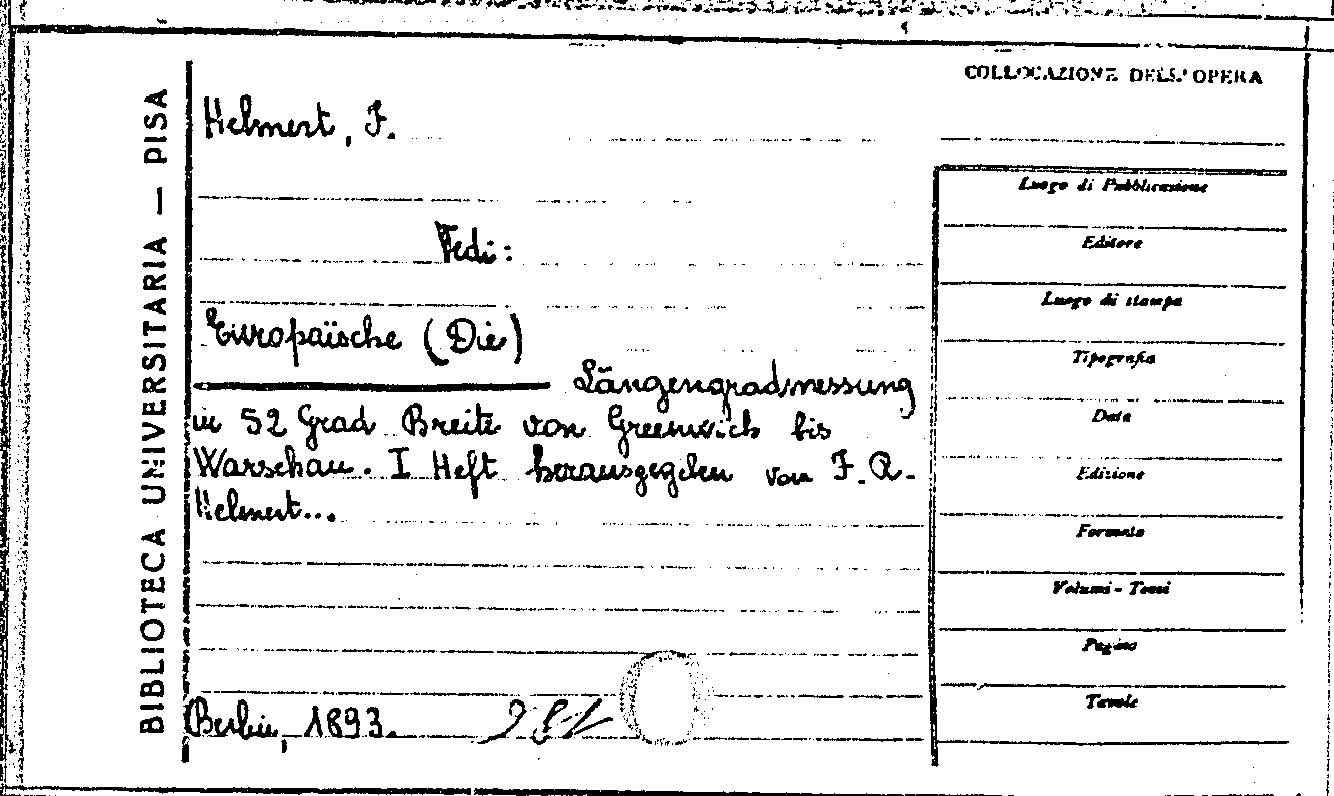 BIBLIOTECA UNIVERSITARIA — PISA
COLLOCAZIONE DELL'OPERA
Helmert, F.
Vedi:
Europaïsche (Die)
Längengradmessung
in 52 Grad Breite von Greenwich bis
Warschau. I Heft herausgegeben von F. R.
Helmert...
Berlin, 1893.
Luogo di Pubblicazione
Editore
Luogo di stampa
Tipografia
Data
Edizione
Formato
Volumi - Tomi
Pagine
Tavole